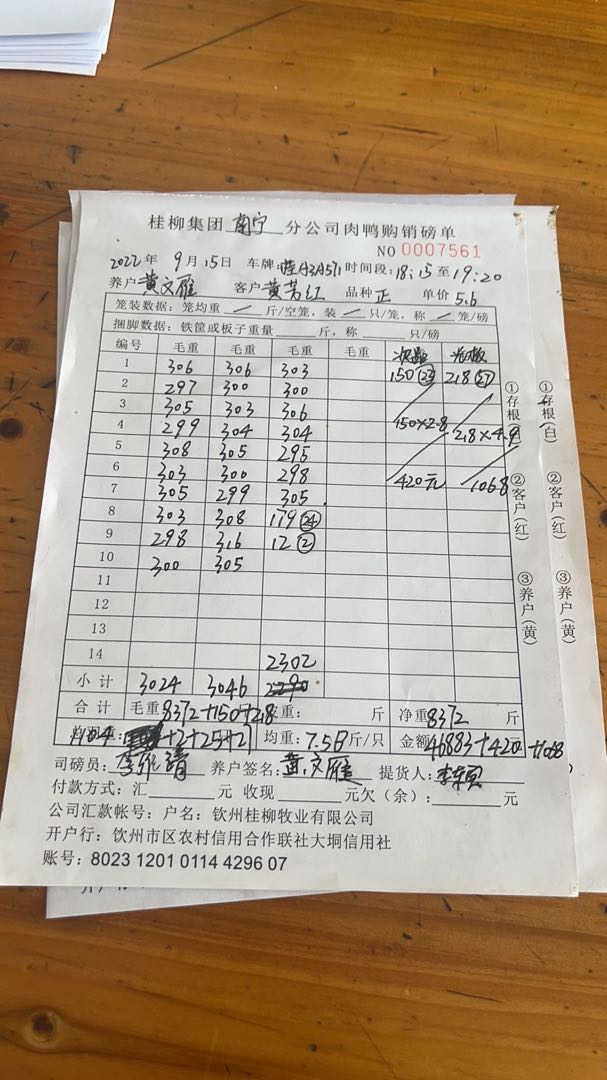 桂柳集团 南宁 分公司肉鸭购销磅单
NO 0007561
2022年 9月15日 车牌: 桂A3A571 时间段: 18:15 至 19:20
养户 黄文雁 客户 黄芳江 品种 正 单价 5.6
笼装数据: 笼均重 / 斤/空笼, 装 / 只/笼, 称 / 笼/磅
捆脚数据: 铁筐或板子重量 斤, 称 只/磅
编号 毛重 毛重 毛重 毛重 次鸭
1 306 306 303 150 (25) 218 (27)
2 297 300 300
3 305 303 306 150×2.8
4 299 304 304 218×4.9
5 308 305 295
6 303 300 298 420元 1068
7 305 299 305
8 303 308 179 (24)
9 298 316 12 (2)
10 300 305
11
12
13
14 2302
小计 3024 3046 2290
合计 毛重 8372+150+218 重: 斤 净重 8372 斤
1104 +2+25+27 均重: 7.58 斤/只 金额 46883+420+1068
司磅员: 养户签名: 黄文雁 提货人:
付款方式: 汇 元 收现 元欠(余): 元
公司汇款帐号: 户名: 钦州桂柳牧业有限公司
开户行: 钦州市区农村信用合作联社大垌信用社
账号: 8023 1201 0114 4296 07
①存根(白) ②客户(红) ③养户(黄)
①存根(白) ②客户(红) ③养户(黄)